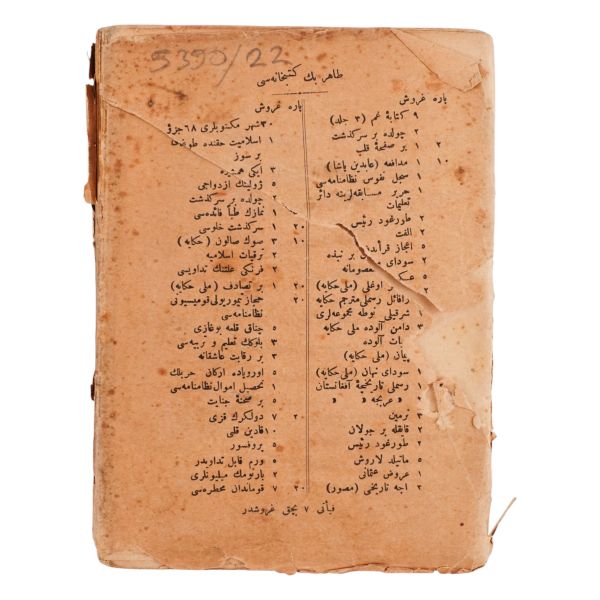 5390/22
طاهر بك كتبخانه‌سى
پاره غروش
٩ كتابهٔ غم (٣ جلد)
٢ چولده بر سركذشت
٢ ١ بر صفحهٔ قلب
١٠ ١ مدافعه (عابدين پاشا)
١ سجل نفوس نظامنامه‌سى
١ حرير مسابقه‌لرينه دائر
تعليمات
٢ طورغود رئيس
٢ الفت
٥ اعجاز قرآندن بر نبذه
٢ سوداى معصومانه
٥ عسكر
٢ اوغلى (ملى حكايه)
١ رافائل رسملى مترجم حكايه
١ شرقيلى نوطه مجموعه‌لرى
٣ دامن آلوده ملى حكايه
آلوده
پيمان (ملى حكايه)
سوداى نهان (ملى حكايه)
رسملى تاريخچهٔ افغانستان
» عربجه » »
٣ نرمين
٢ قافله بر جولان
٢ طورغود رئيس
٥ ماتيلد لاروش
١ عروض عثمانى
٢ اجه تاريخى (مصور)
پاره غروش
٣٠ شهر مكتوبلرى ٦٨ جزؤ
١ اسلاميت حقنده
بر سوز
٣ ايكى همشيره
٥ ژولينك ازدواجى
٢ چولده بر سركذشت
١ نمازك طباً فائده‌سى
٢٠ ١ سركذشت خلوسى
١٠ ٣ سوك صالون (حكايه)
٢ ترقيات اسلاميه
٢ فرنكى علتنك تداويسى
٢٠ ١ بر تصادف (ملى حكايه)
٢٠ حجاز تيموريولى قوميسيونى
نظامنامه‌سى
٥ چناق قلعه بوغازى
٣ بلوك تعليم و تربيه‌سى
٣ بر رقابت عاشقانه
٥ اوروپاده اركان حربلك
١ تحصيل اموال نظامنامه‌سى
٥ بر صحنهٔ جنايت
٢٠ ٧ دولكرك قزى
١٠ قادين قلبى
٥ پروفسور
٥ ورم قابل تداويدر
٢ بارنومك ميليونلرى
٢٠ ٧ قوماندان محطره‌سى
فيأتى ٧ بچق غروشدر